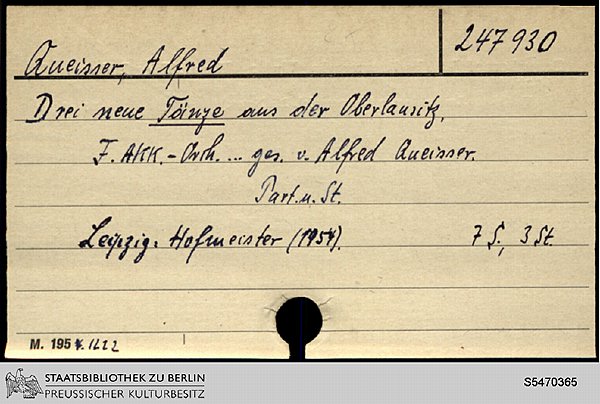 247930
Queisser, Alfred
Drei neue Tänze aus der Oberlausitz,
F. AKK.-Orch. ... ges. v. Alfred Queisser.
Part. u. St.
Leipzig: Hofmeister (1954). 7 S., 3 St.
M. 1954. 1622
STAATSBIBLIOTHEK ZU BERLIN
PREUSSISCHER KULTURBESITZ
S5470365